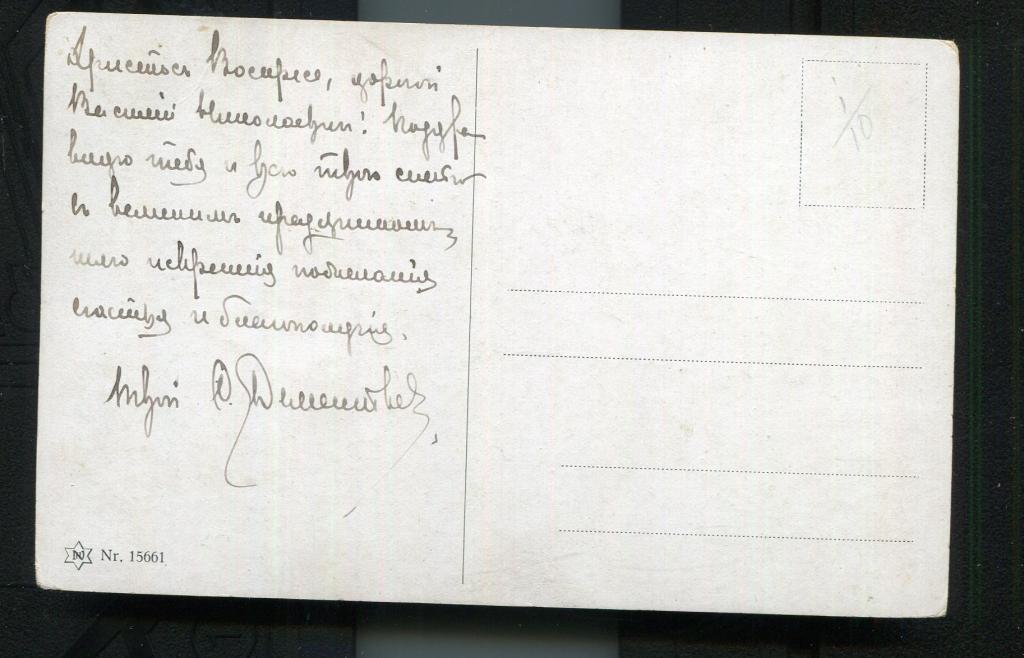 Христосъ Воскресе, дорогой
Василій Николаевичъ! Поздра
вляю тебя и всю твою семью
съ великимъ праздникомъ,
шлю искреннія пожеланія
счастья и благополучія.
твой Ѳ. Дементьевъ
1/10
Nr. 15661